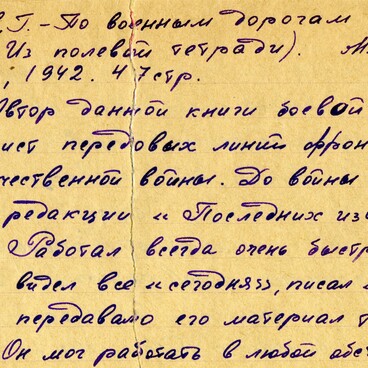 .Г. - По военным дорогам
Из полевой тетради). М
, 1942. 47стр.
Автор данной книги боевой
ист передовых линий фрон
чественной войны. До войны
редакции «Последних из
Работал всегда очень быстр
видел все «сегодня», писал «
передавало его материал т
Он мог работать в любой обст